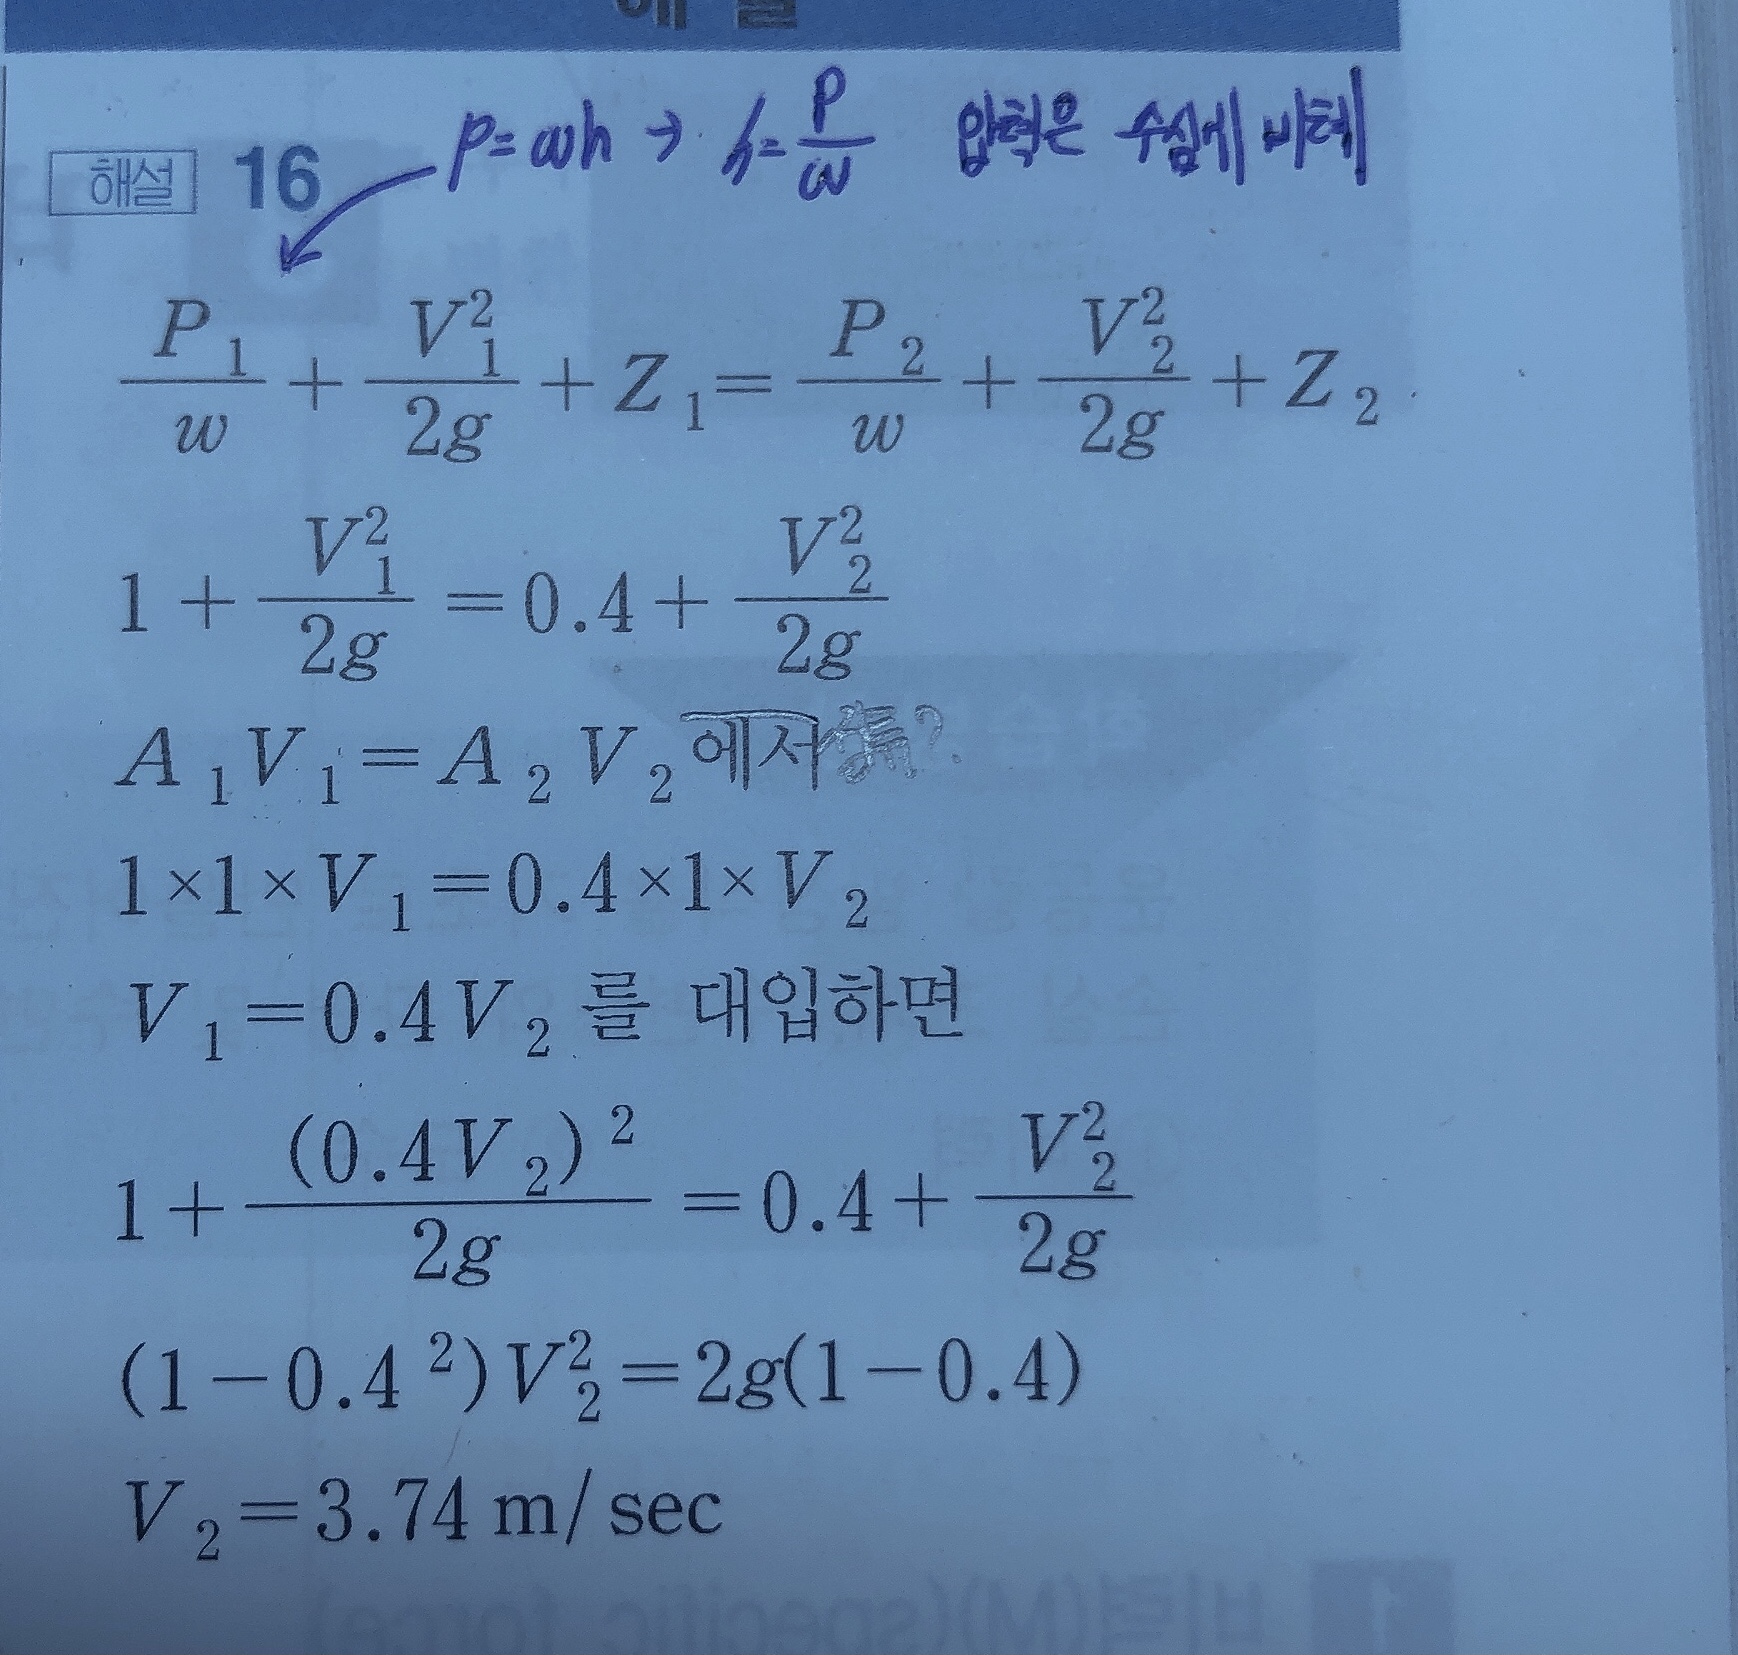 해 설
p=ωh → h=P/ω 압력은 수심에 비례
해설 16
P₁/w + V₁²/2g + Z₁ = P₂/w + V₂²/2g + Z₂
1 + V₁²/2g = 0.4 + V₂²/2g
A₁V₁ = A₂V₂ 에서
1×1×V₁ = 0.4×1×V₂
V₁ = 0.4V₂ 를 대입하면
1 + (0.4V₂)²/2g = 0.4 + V₂²/2g
(1−0.4²)V₂² = 2g(1−0.4)
V₂ = 3.74 m/sec